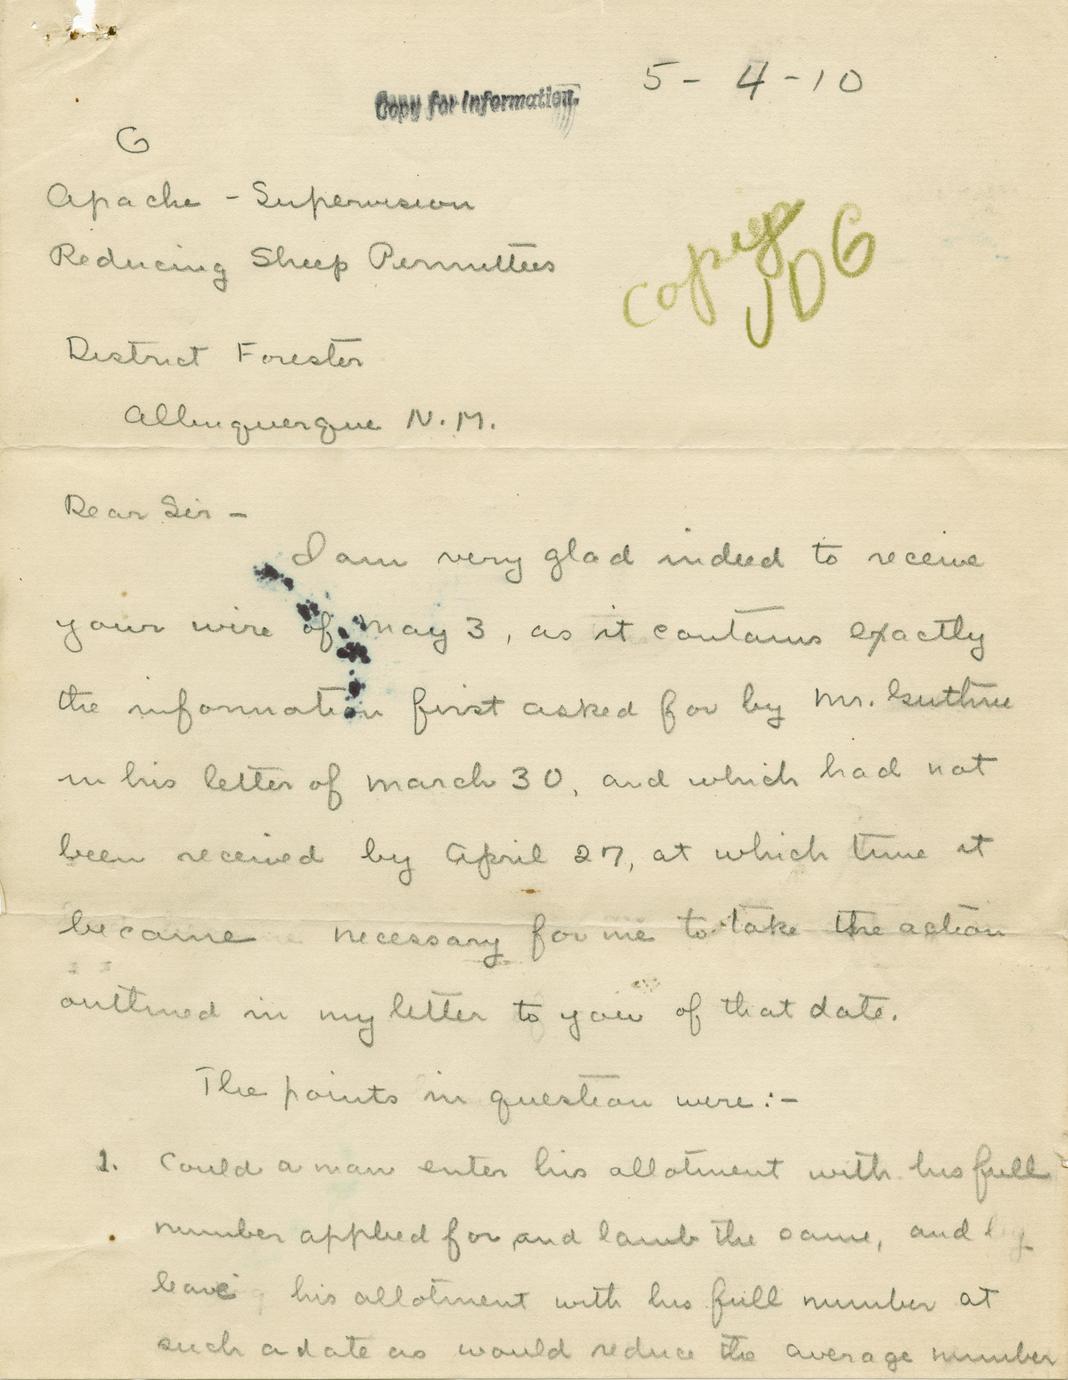 5-4-10
Copy for Information.
G
Apache - Supervision
Reducing Sheep Permittees
Copy
JDG
District Forester
Albuquerque N.M.
Dear Sir -
I am very glad indeed to receive
your wire of May 3, as it contains exactly
the information first asked for by Mr. Guthrie
in his letter of March 30, and which had not
been received by April 27, at which time it
became necessary for me to take the action
outlined in my letter to you of that date.
The points in question were:-
1. Could a man enter his allotment with his full
number applied for and lamb the same, and by
leave his allotment with his full number at
such a date as would reduce the average number